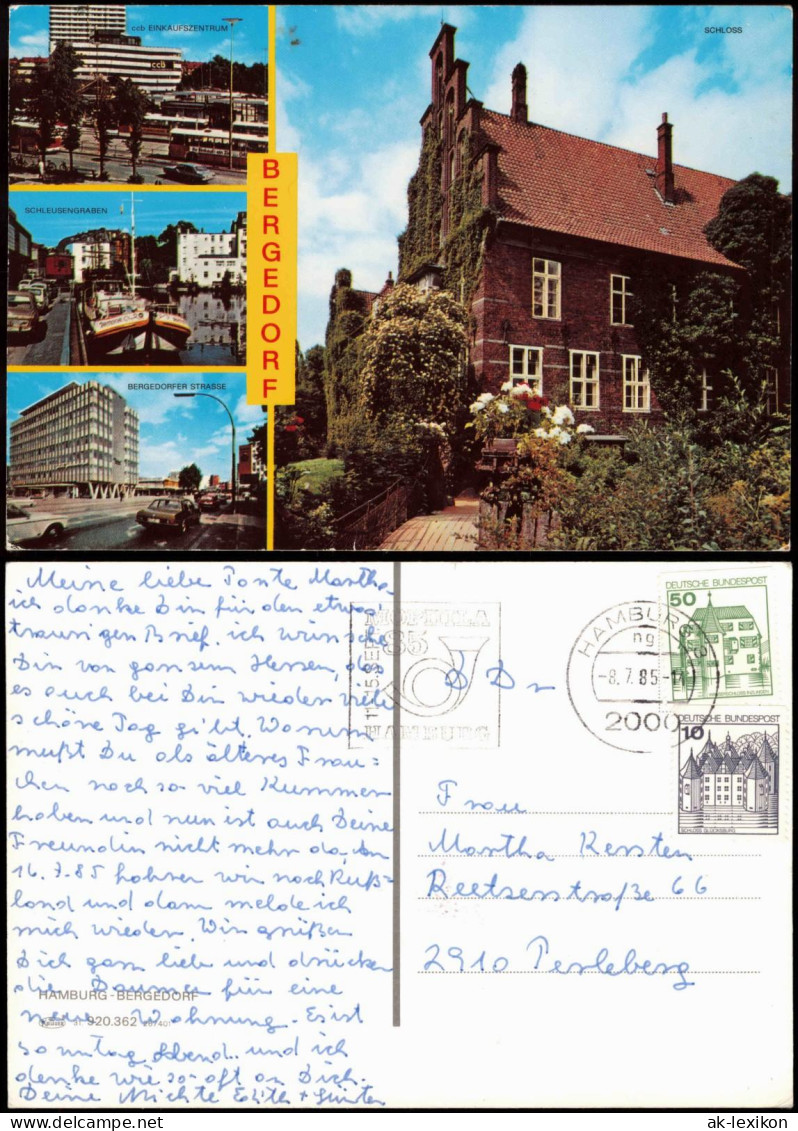 ccb EINKAUFSZENTRUM
SCHLOSS
SCHLEUSENGRABEN
BERGEDORF
BERGEDORFER STRASSE
Meine liebe Tante Martha,
ich danke Dir für den etwas
traurigen Brief. ich wünsche
Dir von ganzem Herzen, daß
es auch bei Dir wieder viele
schöne Tag gibt. Warum
mußt Du als älteres Frau=
chen noch so viel Kummer
haben und nun ist auch Deine
Freundin nicht mehr da, Am
16.7.85 fahren wir nach Ruß=
land und dann melde ich
mich wieder. Wir grüßen
Dich ganz lieb und drücken
die Daumen für eine
HAMBURG-BERGEDORF
neue Wohnung. Es ist
31 920.362
sonntag Abend.. und ich
denke wie so oft an Dich.
Deine Nichte Edith + Günter
MOPHILA
85
HAMBURG
HAMBURG
-8.7.85-
2000
DEUTSCHE BUNDESPOST
50
DEUTSCHE BUNDESPOST
10
SCHLOSS GLÜCKSBURG
DDR
Frau
Martha Kersten
Reetzerstraße 66
2910 Perleberg
ak-lexikon.com